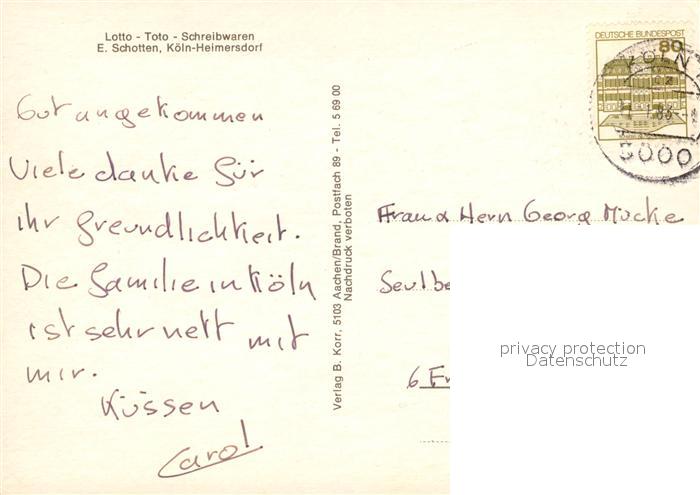 Lotto - Toto - Schreibwaren
E. Schotten, Köln-Heimersdorf
Gut angekommen
Viele danke für
ihr freundlichkeit.
Die familie in Köln
ist sehr nett mit
mir.
Küssen
Carol
Verlag B. Korr, 5103 Aachen/Brand, Postfach 89 - Tel. 5 69 00
Nachdruck verboten
DEUTSCHE BUNDESPOST
80
KÖLN
5000
Frau & Hern Georg Mücke
Seulbe
6 Fr
privacy protection
Datenschutz